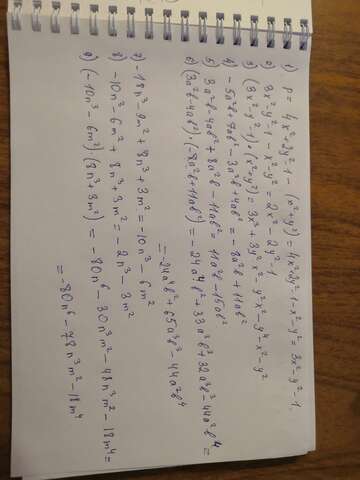 1) P = 4x²+2y²-1 - (x²+y²) = 4x²+2y²-1-x²-y² = 3x²-y²-1.
2) 3x²-y²-1-x²-y² = 2x²-2y²-1
3) (3x²-y²-1)·(x²+y²) = 3x³+3y²x²-y²x²-y⁴-x²-y²
4) -5a²b+7ab²-3a²b+4ab² = -8a²b+11ab²
5) 3a²b-4ab²+8a²b-11ab² = 11a²b-15ab²
6) (3a²b-4ab²)·(-8a²b+11ab²) = -24a⁴b²+33a³b³+32a³b³-44a²b⁴ =
= -24a⁴b²+65a³b³-44a²b⁴
7) -18n³-9m²+8n³+3m² = -10n³-6m²
8) -10n³-6m²+8n³+3m² = -2n³-3m²
9) (-10n³-6m²)(8n³+3m²) = -80n⁶-30n³m²-48n³m²-18m⁴ =
= -80n⁶-78n³m²-18m⁴